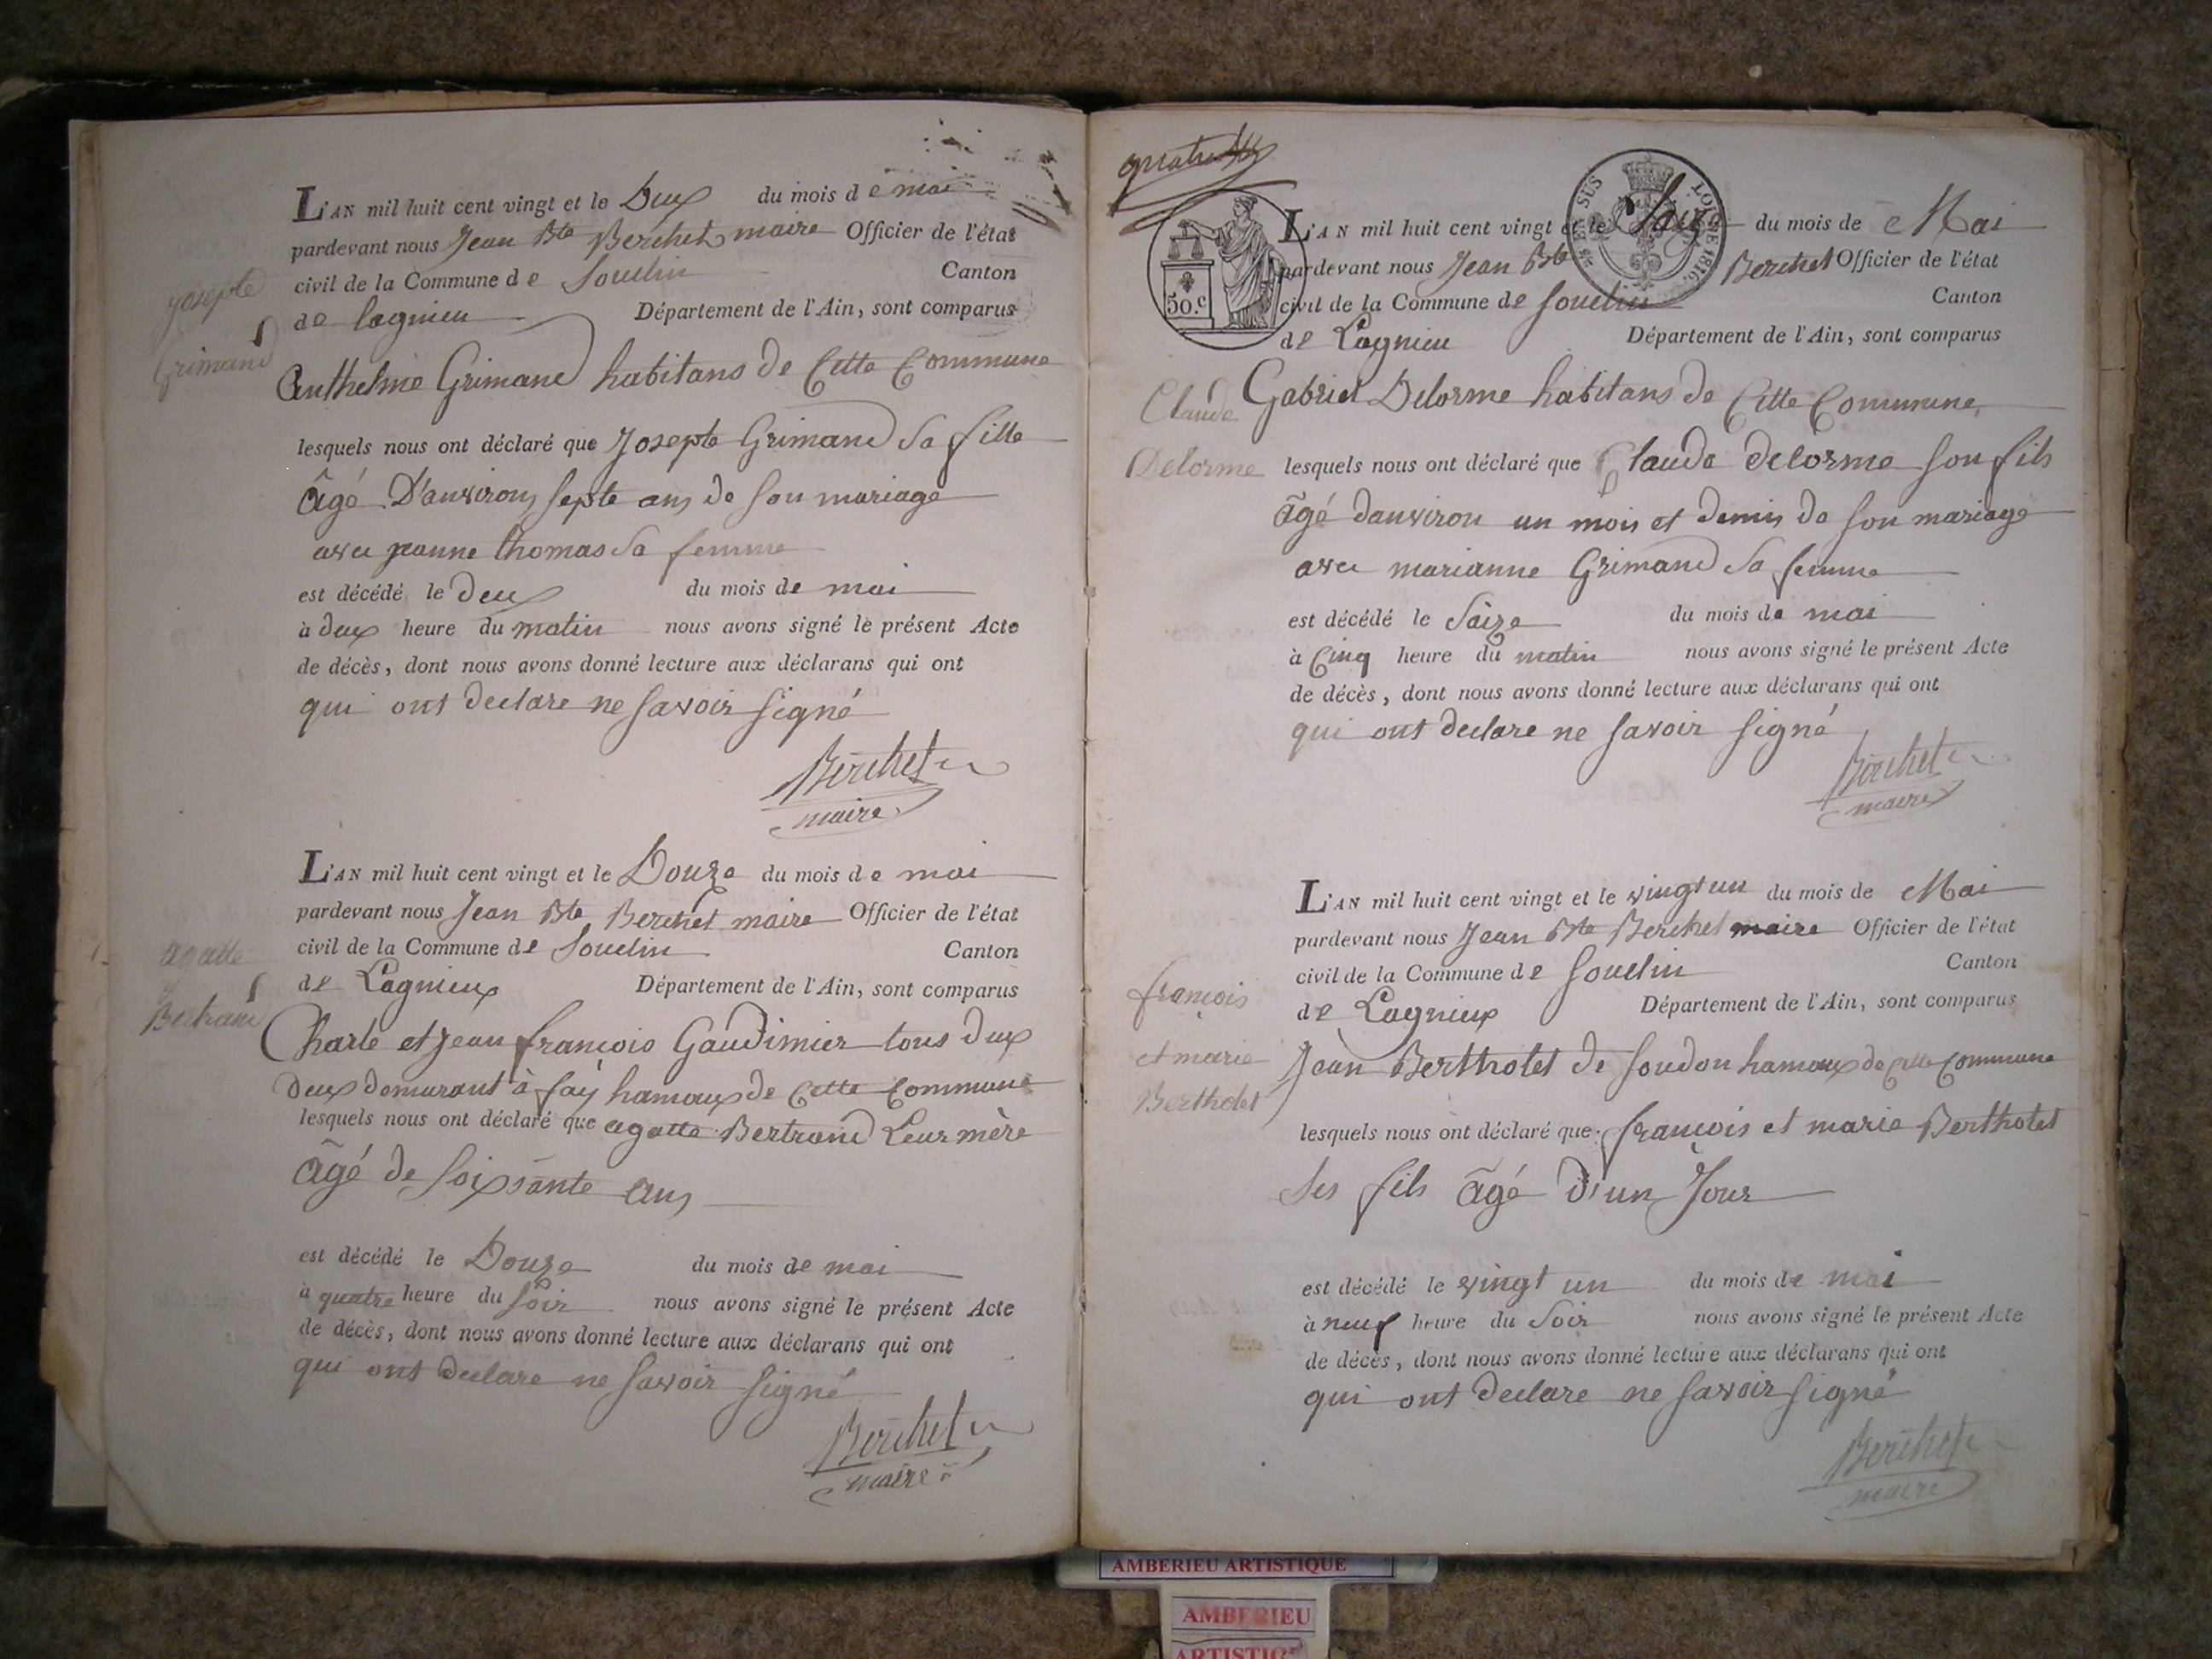 L'AN mil huit cent vingt et le Deux du mois de mai
pardevant nous Jean Bte Berchet maire Officier de l'état
civil de la Commune de Souclin Canton
de lagnieu Département de l'Ain, sont comparus
Josepte
Grimand
Anthelme Grimand habitans de Cette Commune
lesquels nous ont déclaré que Josepte Grimand Sa fille
âgé D'anvirons septe ans de son mariage
avec jeanne thomas Sa femme
est décédé le deux du mois de mai
à deux heure du matin nous avons signé le présent Acte
de décès, dont nous avons donné lecture aux déclarans qui ont
qui ont declare ne savoir signé
Berchet
maire
L'AN mil huit cent vingt et le Douze du mois de mai
pardevant nous Jean Bte Berchet maire Officier de l'état
civil de la Commune de Souclin Canton
de Lagnieux Département de l'Ain, sont comparus
agatte
Bertrand
Charle et Jean françois Gaudimier tous deux
Deux demurant à fay hamaux de Cette Commune
lesquels nous ont déclaré que agatte Bertrand Leur mère
âgé de soixsante ans
est décédé le Douze du mois de mai
à quatre heure du soir nous avons signé le présent Acte
de décès, dont nous avons donné lecture aux déclarans qui ont
qui ont declare ne savoir signé
Berchet
maire
quatre
EN SUS
LOI DE 1816.
50.c
L'AN mil huit cent vingt et le Saize du mois de Mai
pardevant nous Jean Bte Berchet Officier de l'état
civil de la Commune de Souclin Canton
de Lagnieu Département de l'Ain, sont comparus
Claude
Delorme
Gabriel Delorme habitans de Cette Commune
lesquels nous ont déclaré que Claude delorme son fils
âgé danviron un mois et demis de son mariage
avec marianne Grimand Sa femme
est décédé le Saize du mois de mai
à Cinq heure du matin nous avons signé le présent Acte
de décès, dont nous avons donné lecture aux déclarans qui ont
qui ont declare ne savoir signé
Berchet
maire
L'AN mil huit cent vingt et le vingt un du mois de Mai
pardevant nous Jean Bte Berchet maire Officier de l'état
civil de la Commune de Souclin Canton
de Lagnieux Département de l'Ain, sont comparus
françois
et marie
Berthotet
Jean Berthotet de Soudon hamaux de Cette Commune
lesquels nous ont déclaré que françois et marie Berthotet
Ses fils âgé d'un Jour
est décédé le vingt un du mois de mai
à neuf heure du Soir nous avons signé le présent Acte
de décès, dont nous avons donné lecture aux déclarans qui ont
qui ont declare ne savoir signé
Berchet
maire
AMBERIEU ARTISTIQUE
AMBERIEU
ARTISTIQ